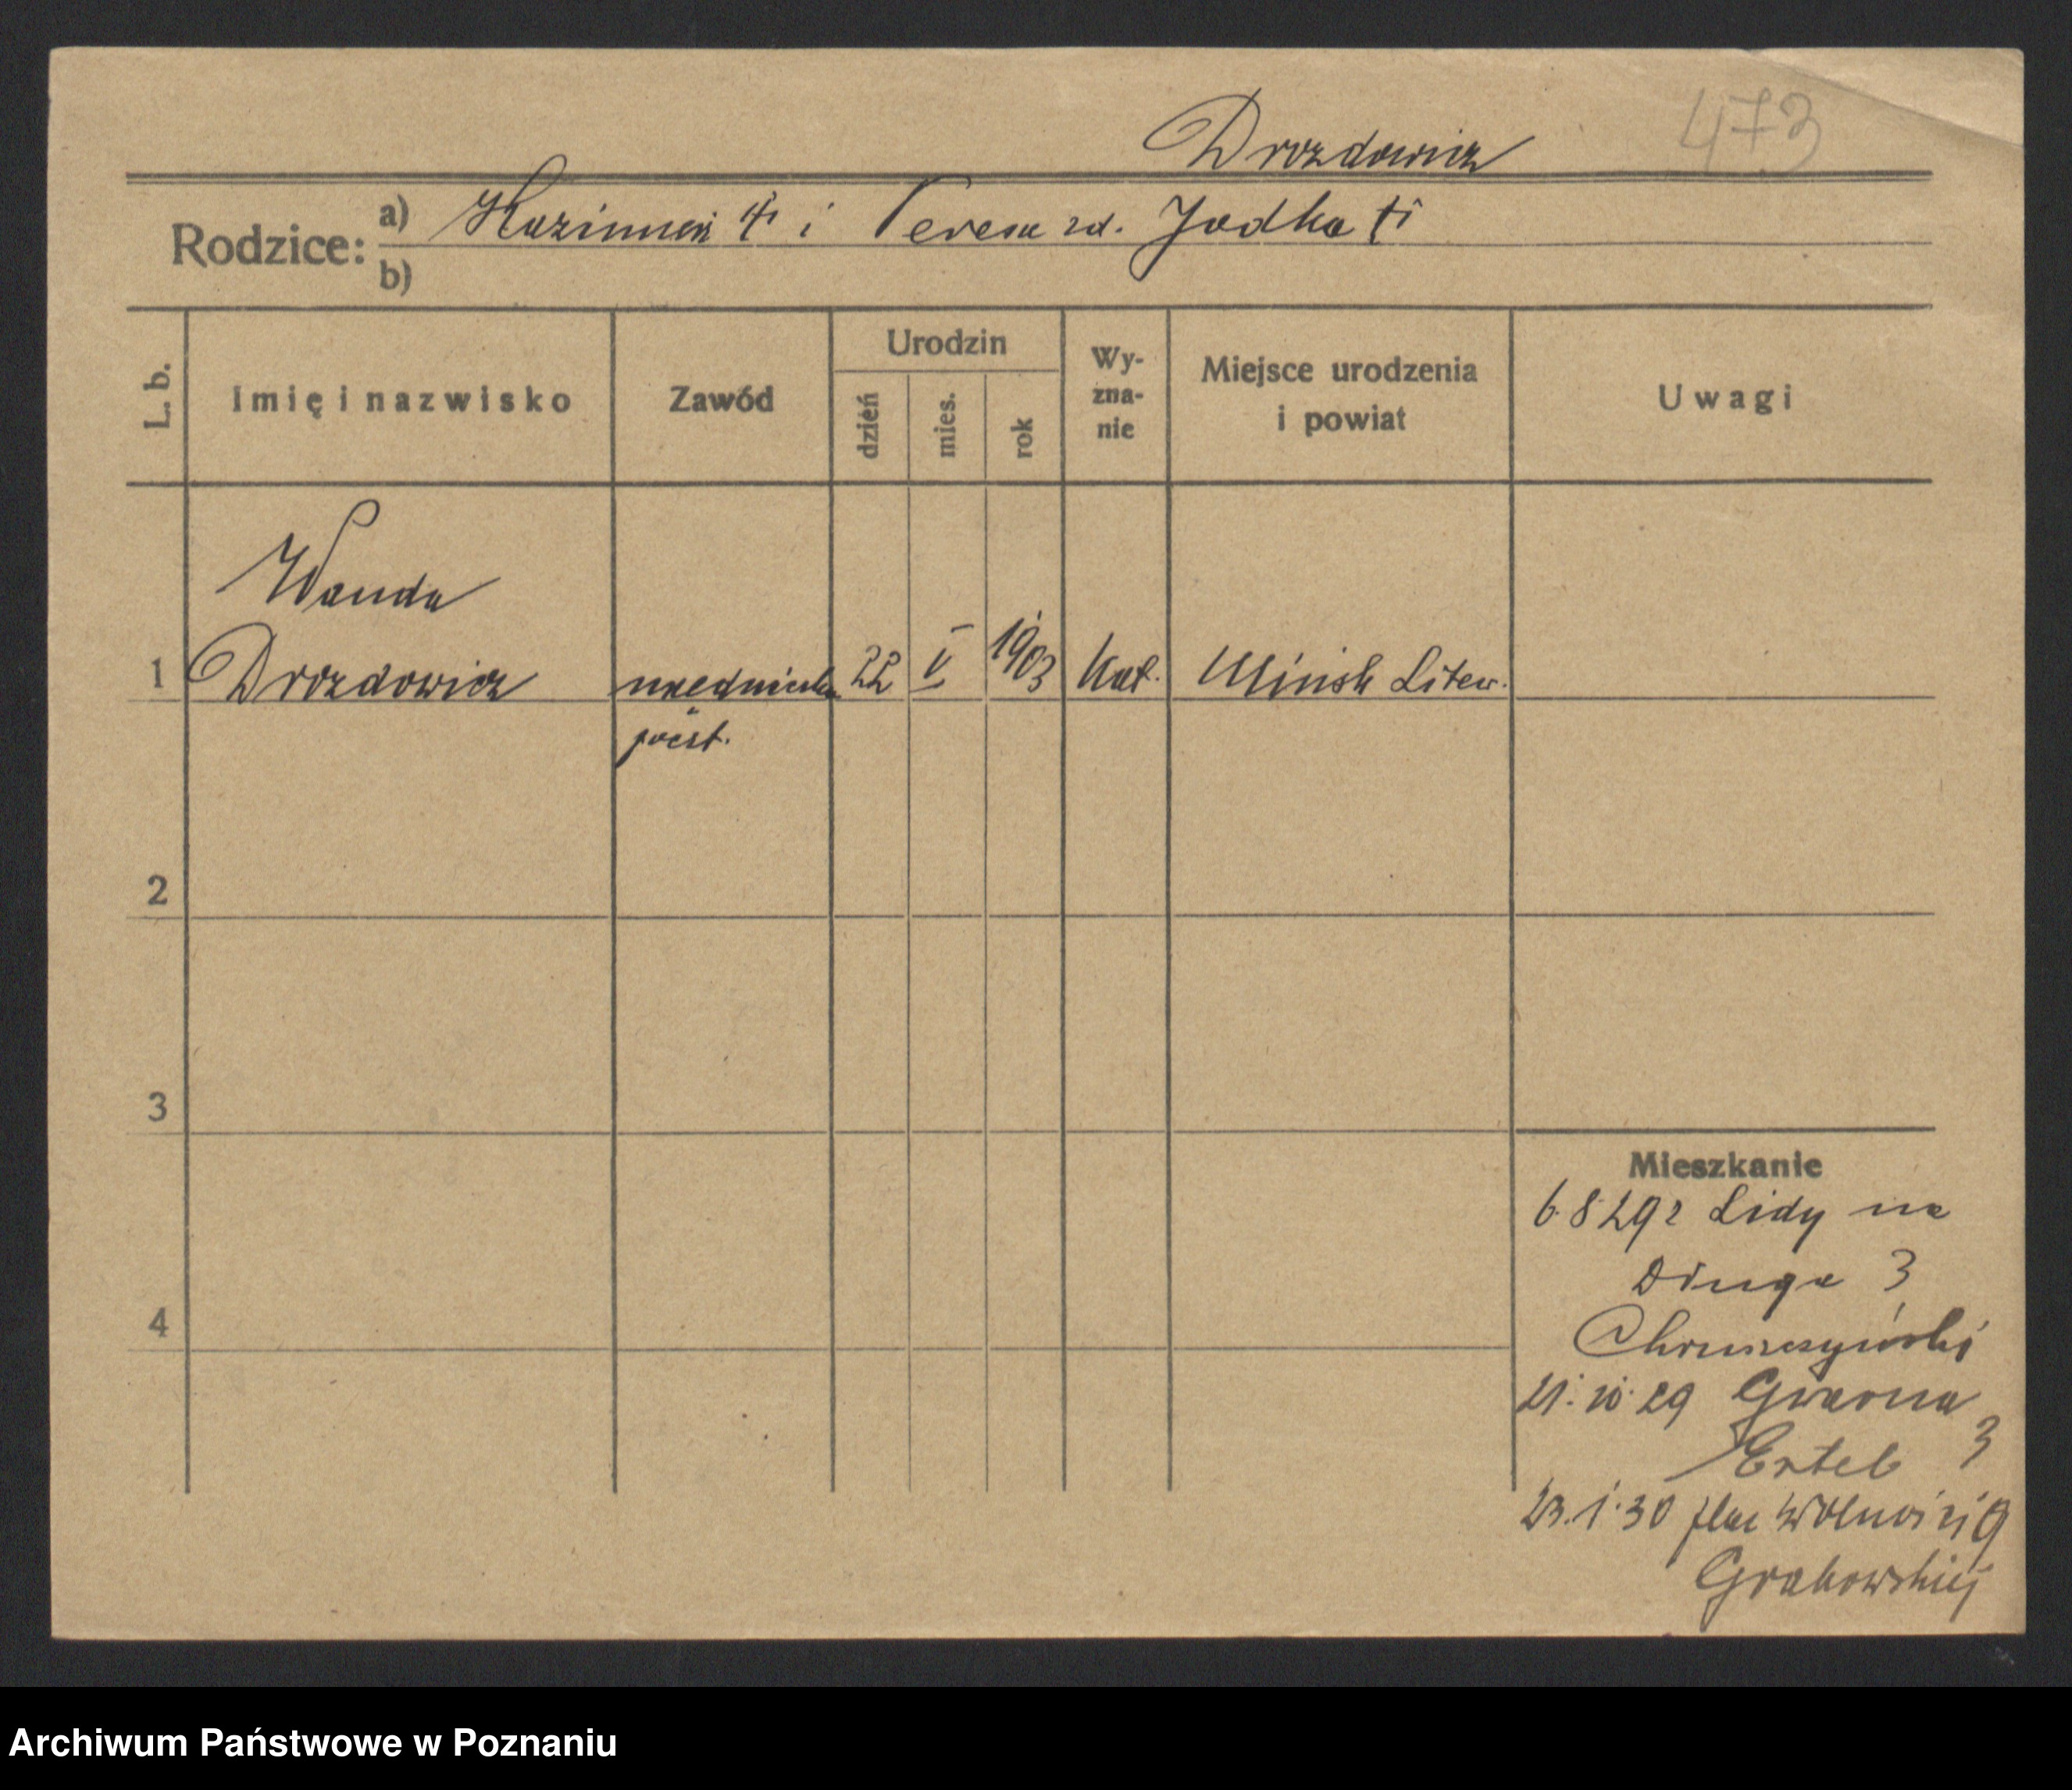 Drozdowicz 473
Rodzice: a) Kazimierz † i Teresa zd. Jodko †i
b)
L. b. Imię i nazwisko Zawód Urodzin dzień mies. rok Wy-zna-nie Miejsce urodzenia i powiat Uwagi
Wanda
1 Drozdowicz urzedniczka 22 V 1903 kat. Mińsk Litew.
poczt.
2
3
Mieszkanie
6.8.29 z Lidy na
Długa 3
4
Chruszczyński
21.10.29 Gwarna
Ertel 3
23.1.30 plac Wolności 9
Grabowskiej
Archiwum Państwowe w Poznaniu